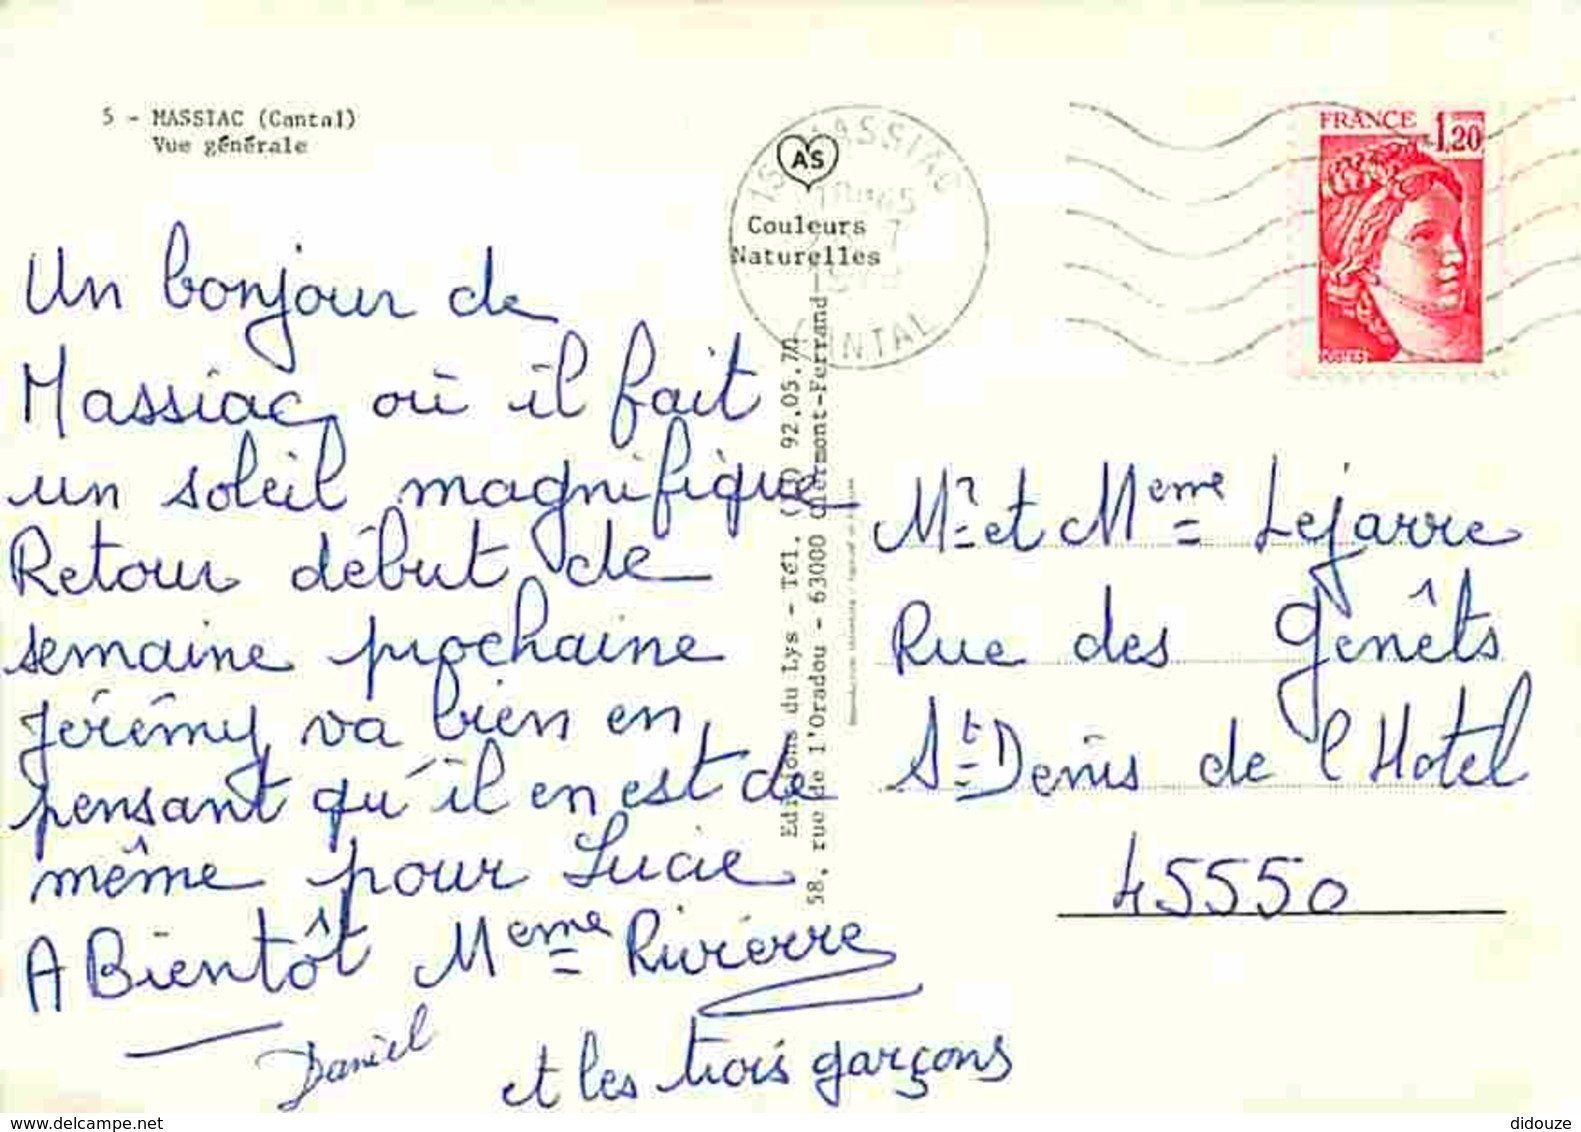 5 - MASSIAC (Cantal)
Vue générale
AS
Couleurs
Naturelles
MASSIAC
CANTAL
FRANCE 1,20
POSTES
Un bonjour de
Massiac où il fait
un soleil magnifique
Retour début de
semaine prochaine
Jérémy va bien en
pensant qu'il en est de
même pour Lucie
A Bientôt Meme Rivierre
Daniel
et les trois garçons
Editions du Lys - Tél. 92.05.70
58, rue de l'Oradou - 63000 Clermont-Ferrand
Mr et Meme Lejarre
Rue des Genêts
St Denis de l'Hotel
45550
didouze
delcampe.net